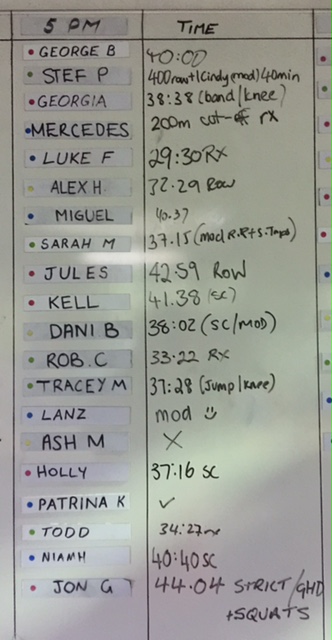 5 PM TIME
GEORGE B 40:00
STEF P 400row+1Cindy(mod)40min
GEORGIA 38:38 (band/knee)
MERCEDES 200m cut-off rx
LUKE F 29:30 RX
ALEX H 32.29 Row
MIGUEL 40.37
SARAH M 37.15 (mod R.R+S.
JULES 42:59 ROW
KELL 41.38 (SC)
DANI B 38:02 (SC/MOD)
ROB.C 33:22 RX
TRACEY M 37:28 (Jump/knee)
LANZ mod
ASH M X
HOLLY 37:16 SC
PATRINA K ✓
TODD 34:27rx
NIAMH 40:40 SC
JON G 44.04 STRICT/GHD
+SQUATS